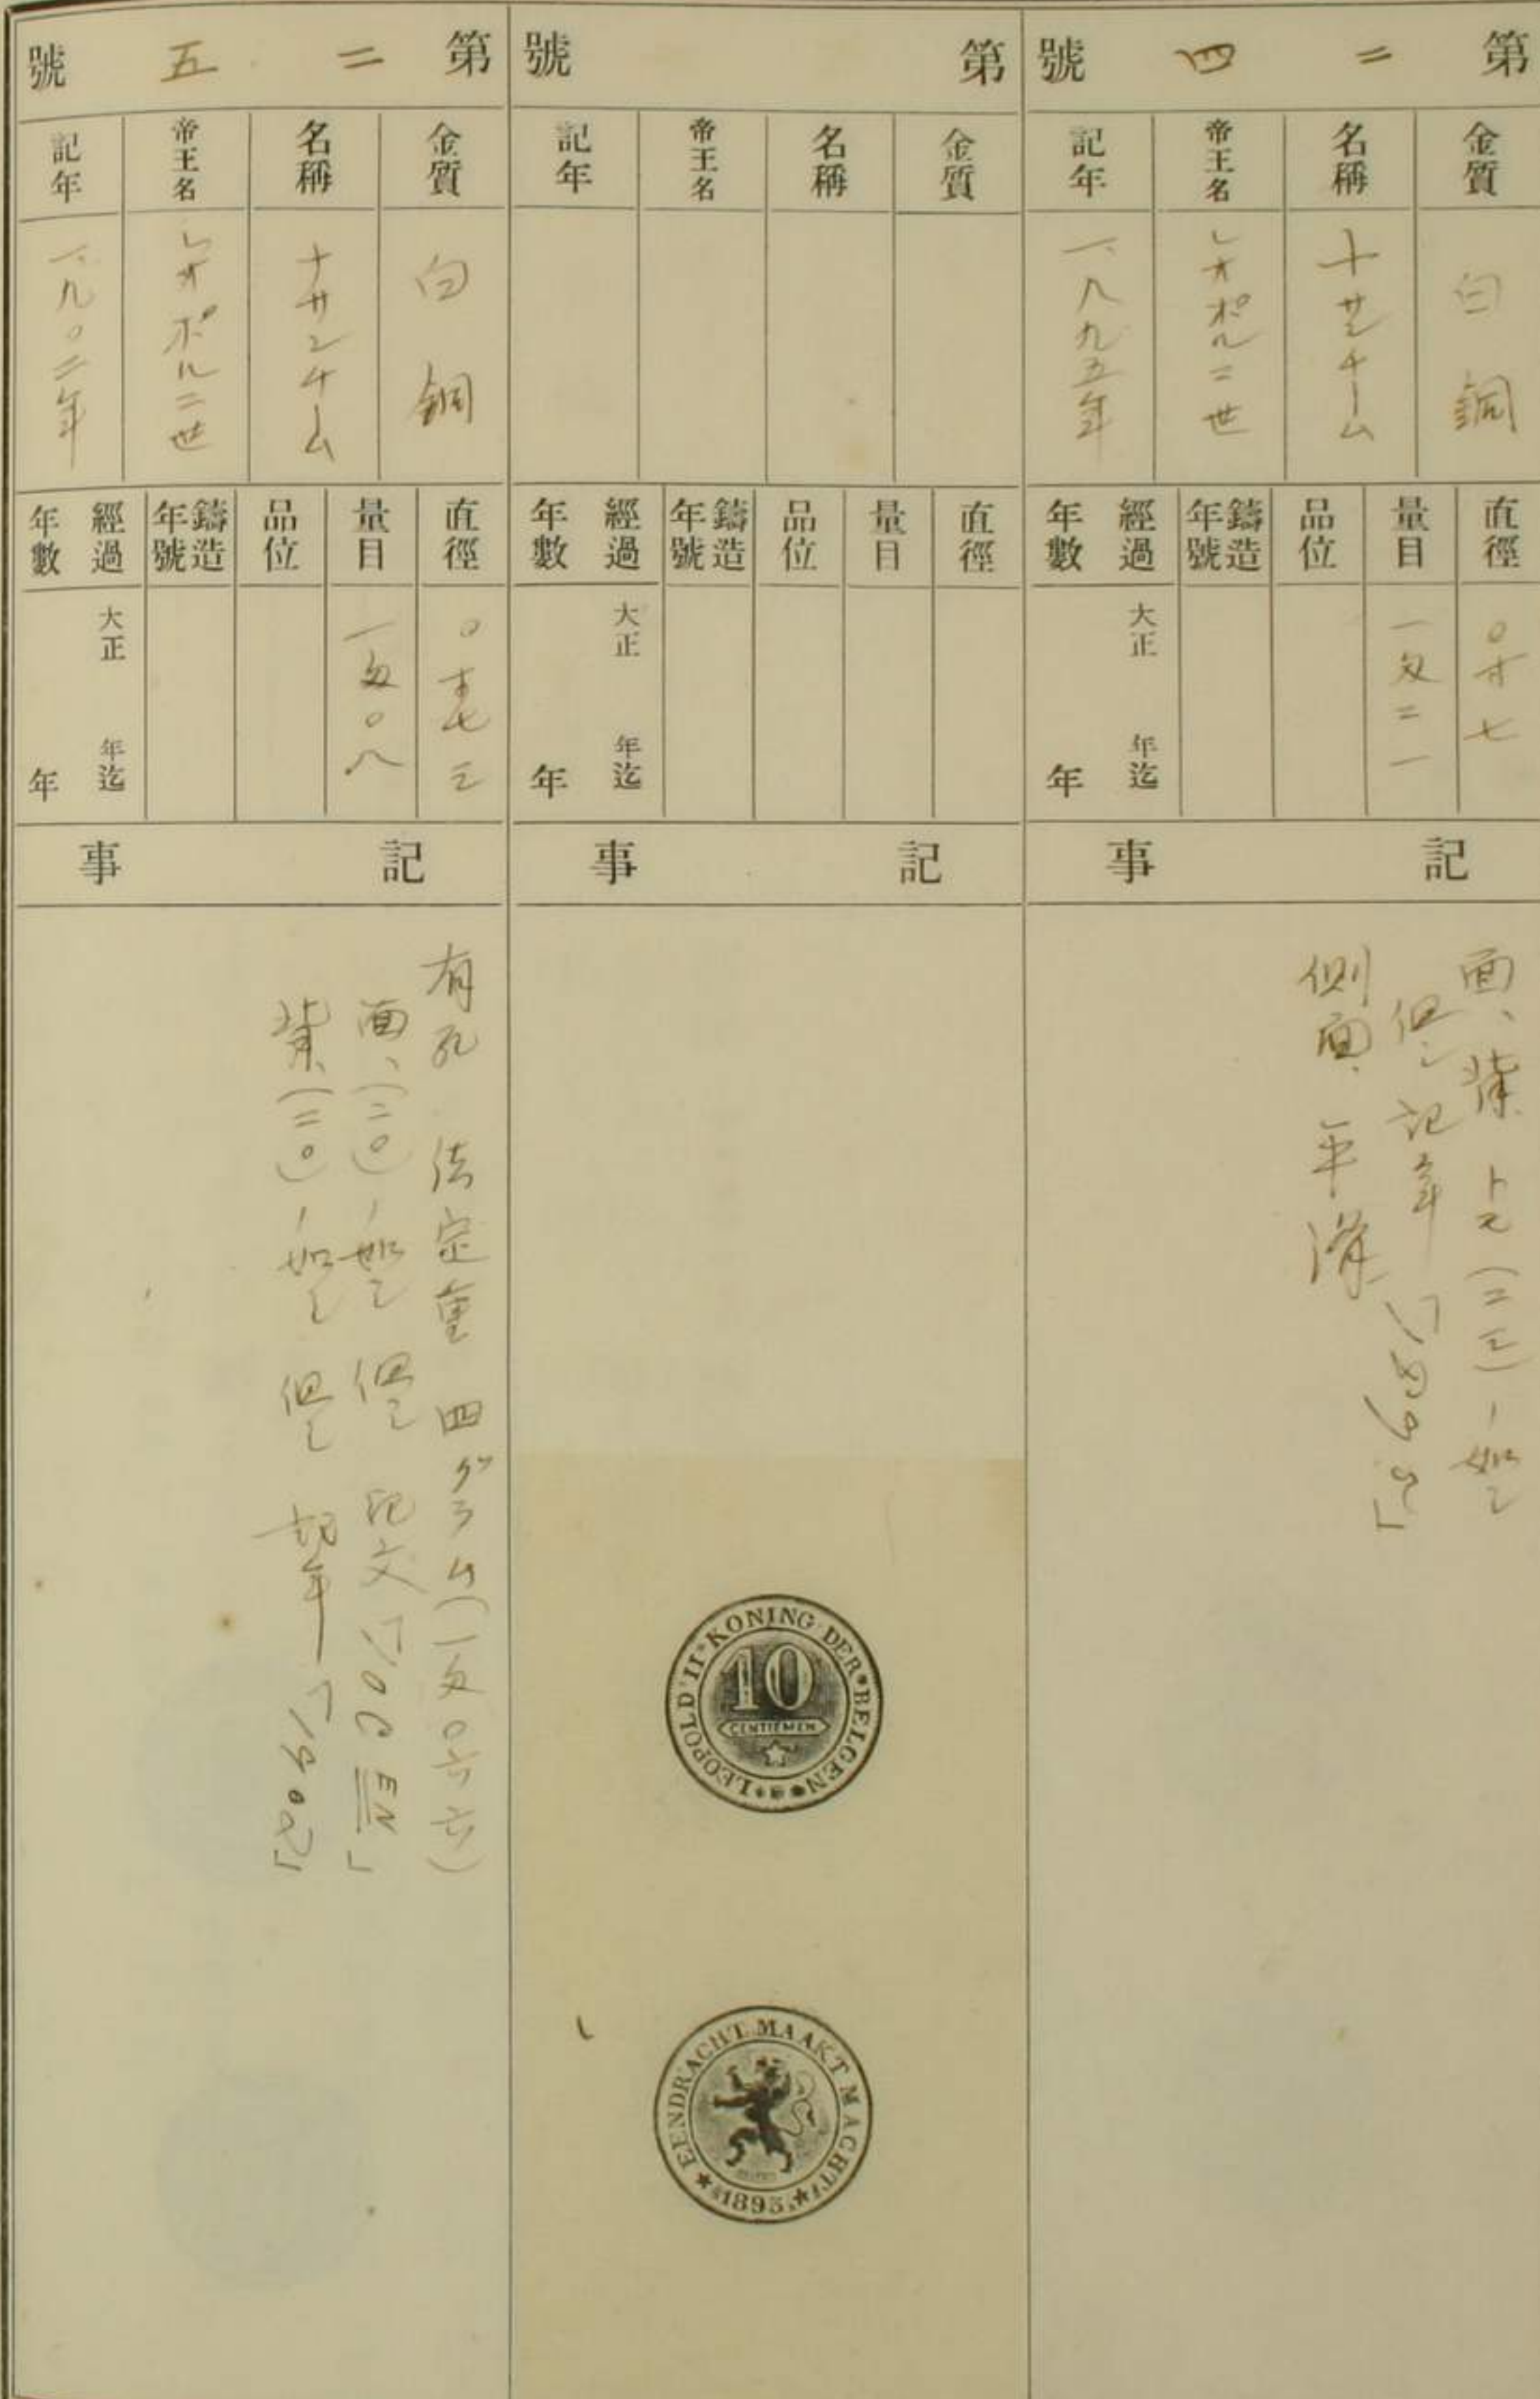 第二四號
金質
白銅
名稱
十サンチーム
帝王名
レオポル二世
記年
一、八九五年
直徑
〇寸七
量目
一匁二一
品位
鑄造年號
經過年數
大正 年迄
年
記事
面、背、
但シ記年「1895」
側面、平滑、
第 號
金質
名稱
帝王名
記年
直徑
量目
品位
鑄造年號
經過年數
大正 年迄
年
記事
LEOPOLD II KONING DER BELGEN
10
CENTIEMEN
EENDRACHT MAAKT MACHT
1895
第二五號
金質
白銅
名稱
十サンチーム
帝王名
レオポル二世
記年
一、九〇二年
直徑
〇寸七三
量目
一匁〇八
品位
鑄造年號
經過年數
大正 年迄
年
記事
有孔 法定量 四グラム(一匁〇六六)
面、(二〇)ノ如シ 但シ 記文「10CEN」
背、(二〇)ノ如シ 但シ 記年「1902」